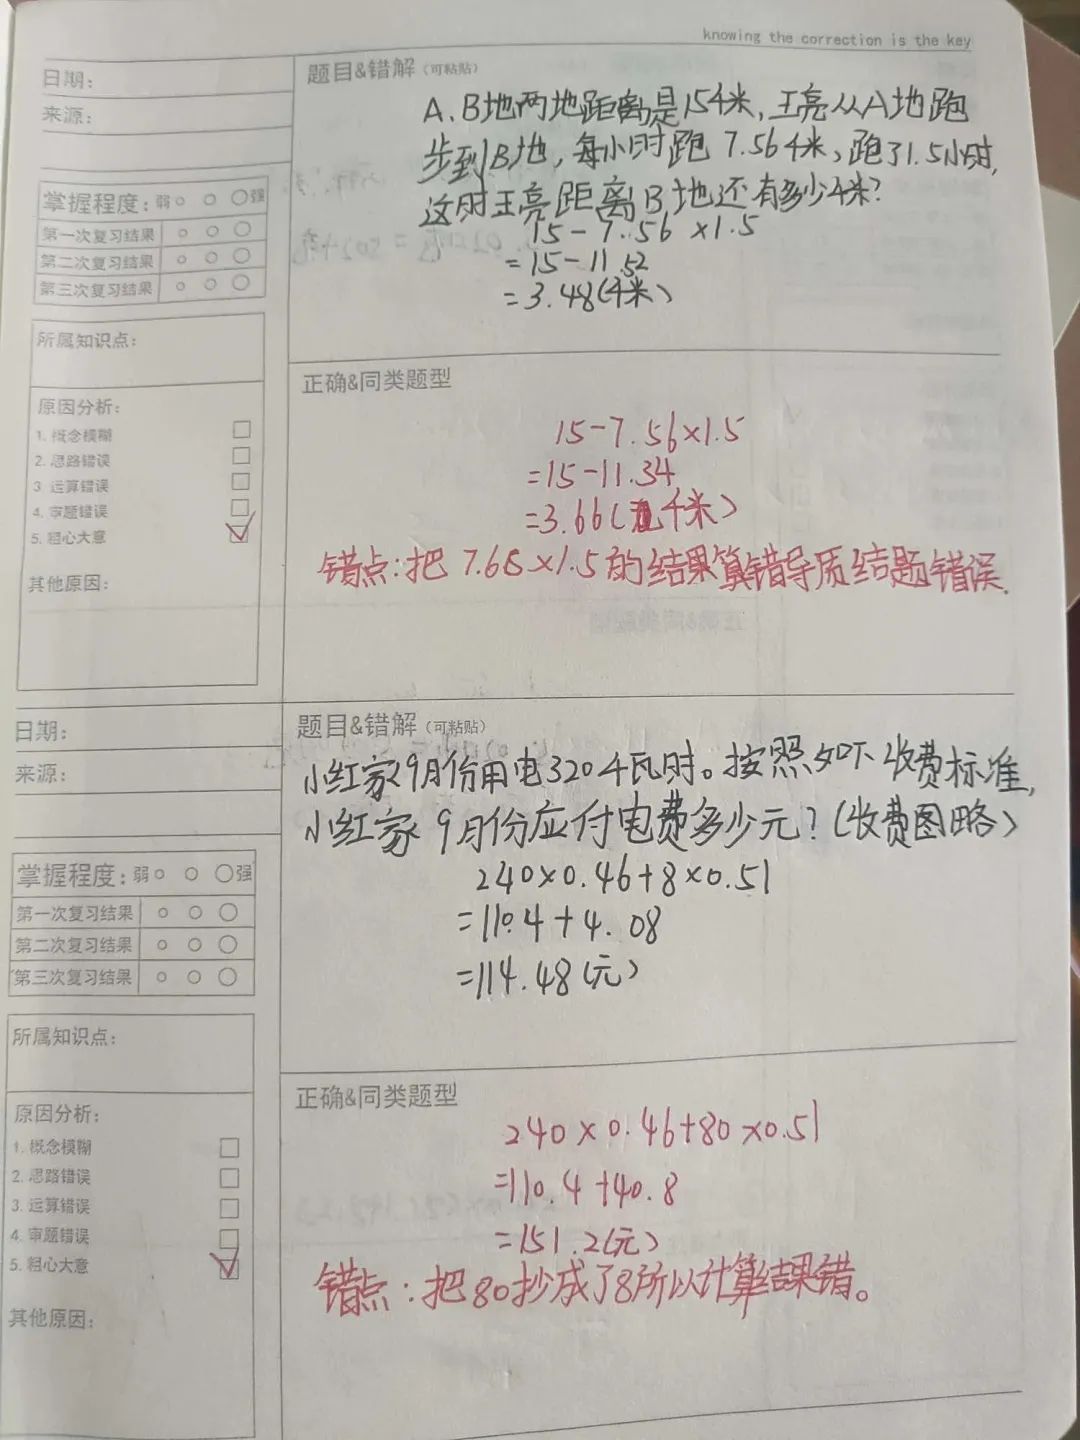 knowing the correction is the key
日期：
来源：
掌握程度：弱 强
第一次复习结果
第二次复习结果
第三次复习结果
所属知识点：
原因分析：
1. 概念模糊
2. 思路错误
3. 运算错误
4. 审题错误
5. 粗心大意
其他原因：
题目&错解（可粘贴）
A、B地两地距离是15千米，王亮从A地跑
步到B地，每小时跑 7.56千米，跑了1.5小时，
这时王亮距离B地还有多少千米？
15-7.56×1.5
=15-11.52
=3.48(千米)
正确&同类题型
15-7.56×1.5
=15-11.34
=3.66(千米)
错点：把 7.65×1.5的结果算错导质结题错误.
日期：
来源：
掌握程度：弱 强
第一次复习结果
第二次复习结果
第三次复习结果
所属知识点：
原因分析：
1. 概念模糊
2. 思路错误
3. 运算错误
4. 审题错误
5. 粗心大意
其他原因：
题目&错解（可粘贴）
小红家9月份用电320千瓦时。按照如下收费标准，
小红家 9月份应付电费多少元？(收费图略)
240×0.46+8×0.51
=110.4+4.08
=114.48(元)
正确&同类题型
240×0.46+80×0.51
=110.4+40.8
=151.2(元)
错点：把80抄成了8所以计算结果错。